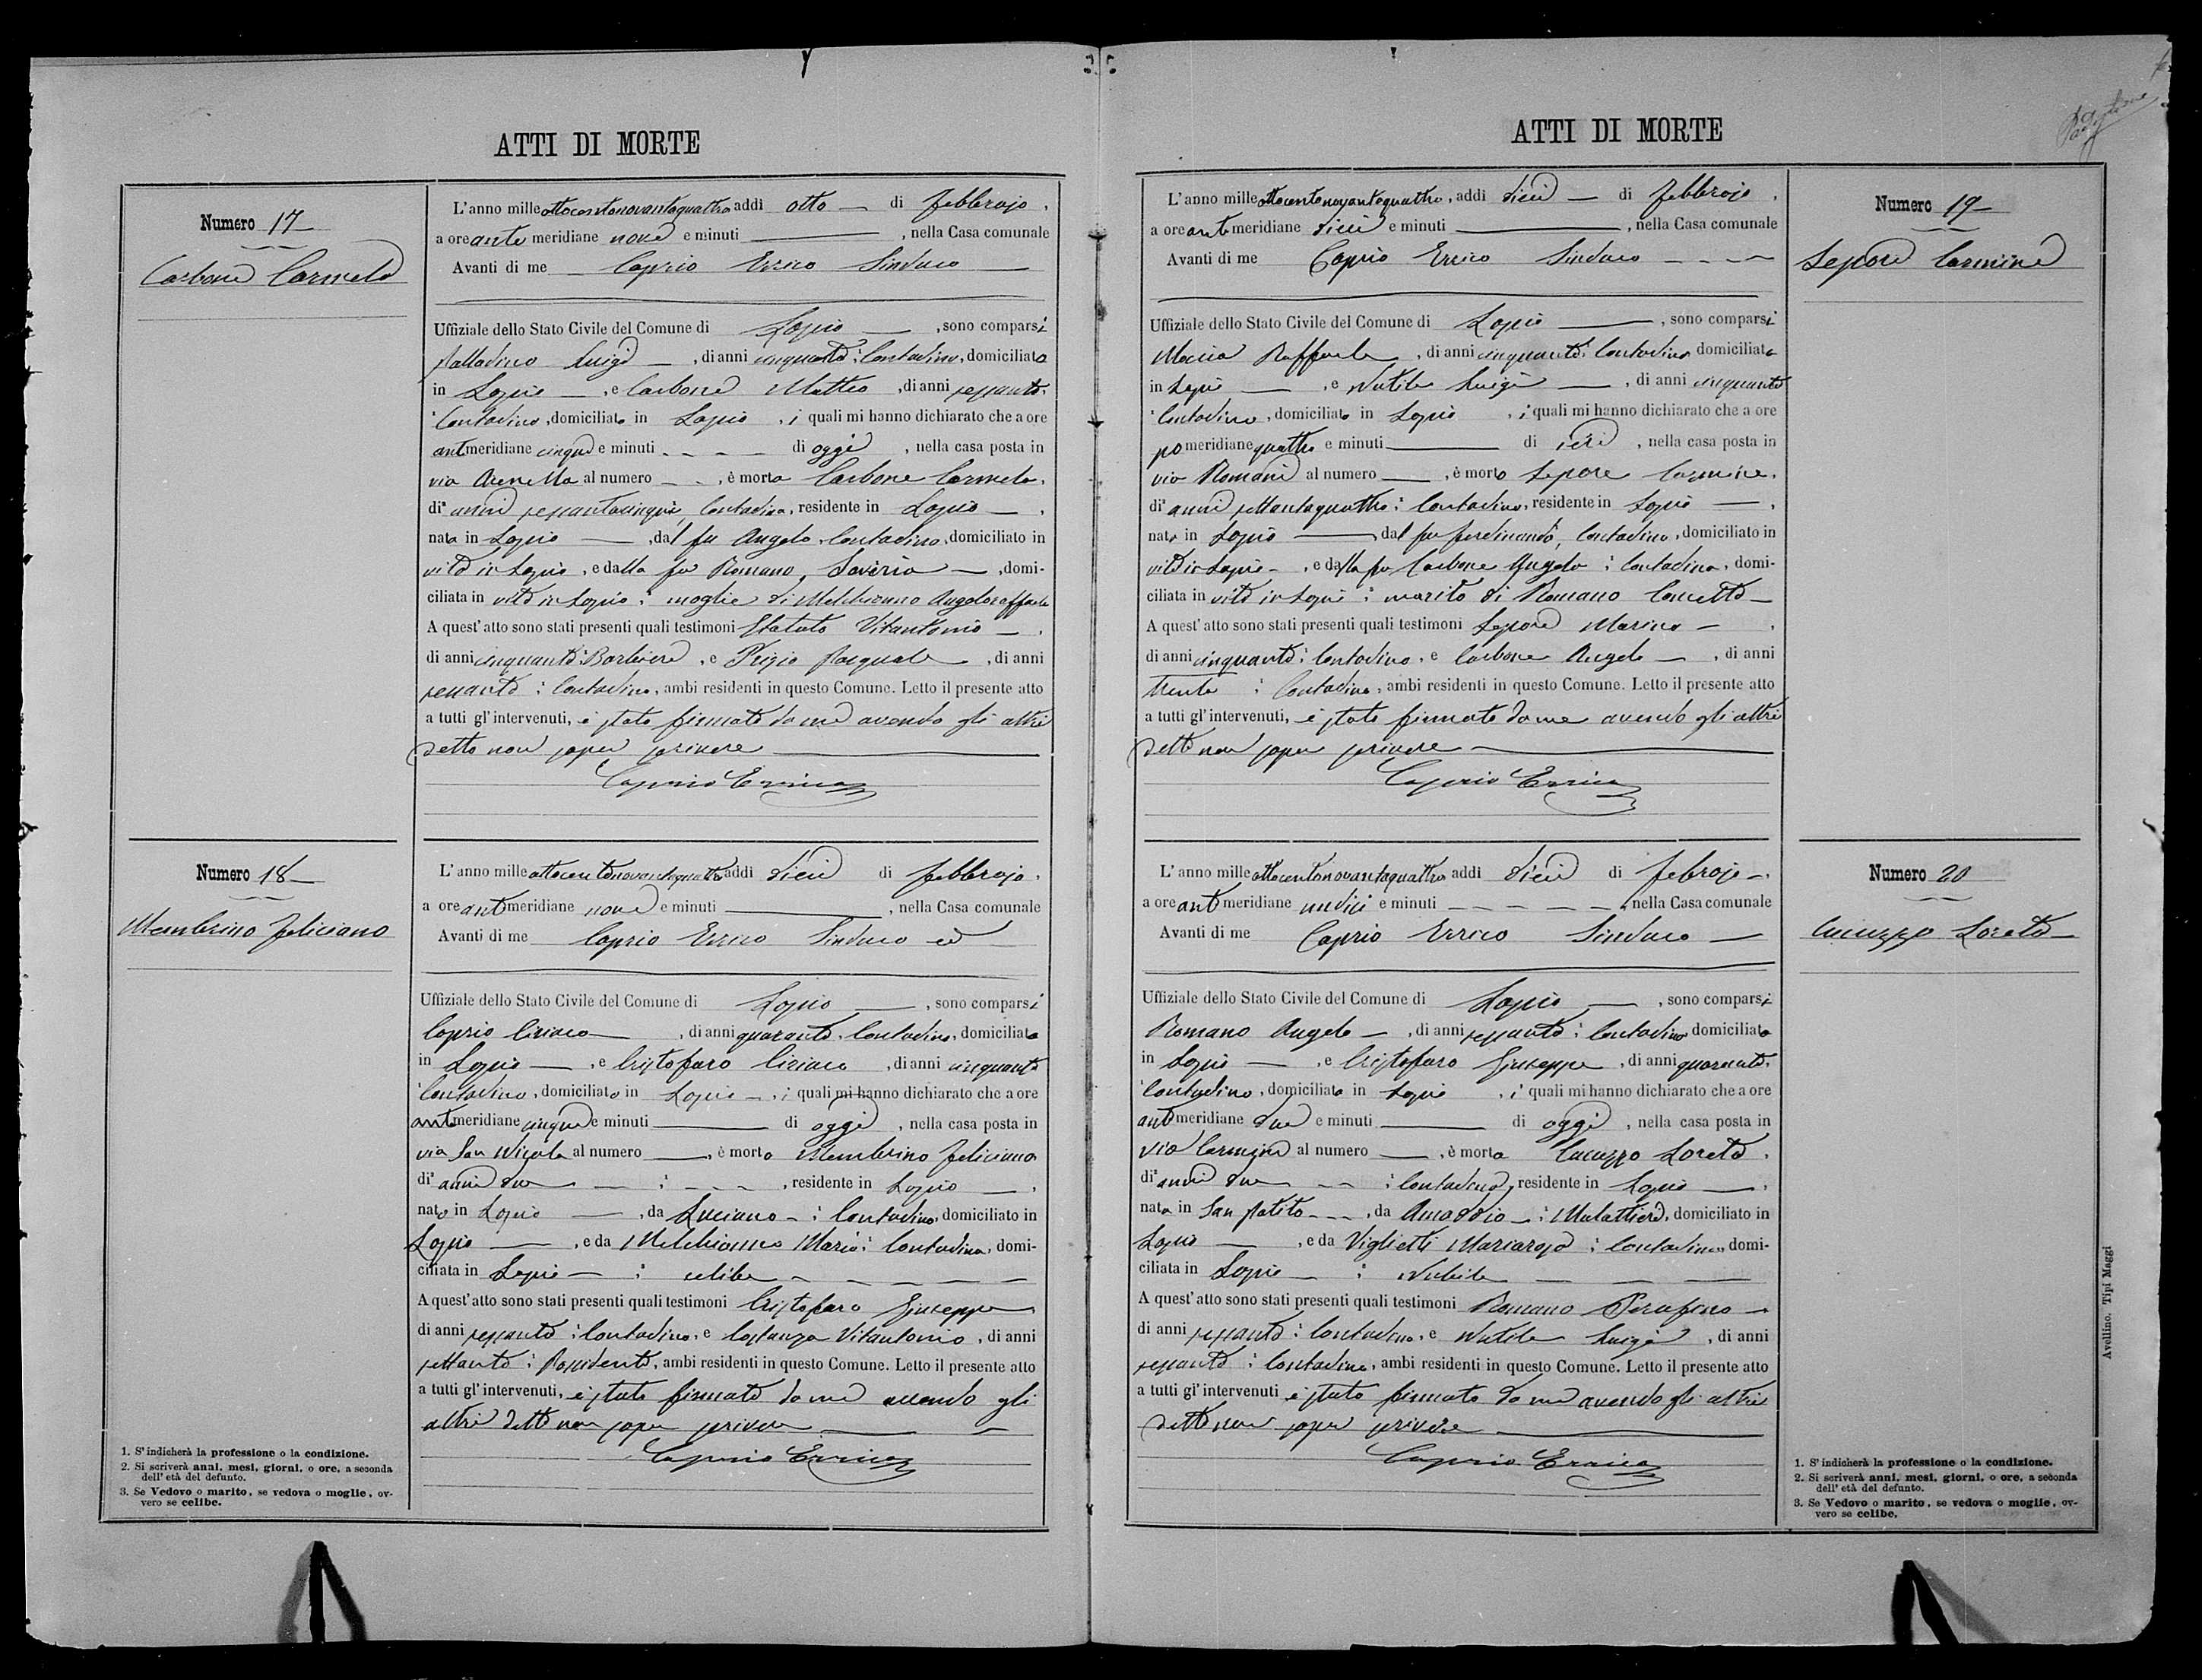 ATTI DI MORTE
Numero 17
Carbone Carmela
L'anno milleottocentonovantaquattro addì otto — di Febbrajo,
a ore ante meridiane nove e minuti —, nella Casa comunale
Avanti di me — Caprio Errico Sindaco —
Uffiziale dello Stato Civile del Comune di Lapio —, sono comparsi
Palladino Luigi —, di anni cinquanta: Contadino, domiciliato
in Lapio —, e Carbone Matteo, di anni sessanta:
Contadino, domiciliato in Lapio, i quali mi hanno dichiarato che a ore
antimeridiane cinque e minuti — di oggi, nella casa posta in
via Arenella al numero —, è morta Carbone Carmela,
di anni sessantacinque, Contadina, residente in Lapio —,
nata in Lapio —, dal fu Angelo, Contadino, domiciliato in
vita in Lapio, e dalla fu Romano Saveria —, domi-
ciliata in vita in Lapio: moglie di Melchionno Angeloraffaele
A quest'atto sono stati presenti quali testimoni Statuto Vitantonio —,
di anni cinquanta: Barbiere, e Frizio Pasquale, di anni
sessanta: Contadino, ambi residenti in questo Comune. Letto il presente atto
a tutti gl'intervenuti, è stato firmato da me avendo gli altri
detto non saper scrivere —
Caprio Errico
Numero 18
Membrino Feliciano
L'anno milleottocentonovantaquattro addì dieci di Febbrajo,
a ore antimeridiane nove e minuti —, nella Casa comunale
Avanti di me Caprio Errico Sindaco ed —
Uffiziale dello Stato Civile del Comune di Lapio —, sono comparsi
Caprio Ciriaco —, di anni quaranta, Contadino, domiciliato
in Lapio —, e Cristofaro Ciriaco, di anni cinquanta
Contadino, domiciliato in Lapio —, i quali mi hanno dichiarato che a ore
antimeridiane cinque e minuti — di oggi, nella casa posta in
via San Nicola al numero —, è morto Membrino Feliciano
di anni due — : —, residente in Lapio —,
nato in Lapio —, da Luciano —: Contadino, domiciliato in
Lapio —, e da Melchionno Maria: Contadina, domi-
ciliata in Lapio —: celibe —
A quest'atto sono stati presenti quali testimoni Cristofaro Giuseppe
di anni sessanta: Contadino, e Costanza Vitantonio, di anni
settanta: Possidente, ambi residenti in questo Comune. Letto il presente atto
a tutti gl'intervenuti, è stato firmato da me avendo gli
altri detto non saper scrivere —
Caprio Errico
1. S'indicherà la professione o la condizione.
2. Si scriverà anni, mesi, giorni, o ore, a seconda
dell'età del defunto.
3. Se Vedovo o marito, se vedova o moglie, ov-
vero se celibe.
ATTI DI MORTE
Numero 19
Lepore Carmine
L'anno milleottocentonovantaquattro, addì dieci — di Febbrajo,
a ore antimeridiane dieci e minuti —, nella Casa comunale
Avanti di me Caprio Errico Sindaco —
Uffiziale dello Stato Civile del Comune di Lapio —, sono comparsi
Moccia Raffaele, di anni cinquanta: Contadino, domiciliato
in Lapio —, e Nutile Luigi —, di anni cinquanta
Contadino, domiciliato in Lapio, i quali mi hanno dichiarato che a ore
pomeridiane quattro e minuti — di ieri, nella casa posta in
via Romani al numero —, è morto Lepore Carmine,
di anni settantaquattro: Contadino, residente in Lapio —,
nato in Lapio — dal fu Ferdinando, Contadino, domiciliato in
vita in Lapio —, e dalla fu Carbone Angela: Contadina, domi-
ciliata in vita in Lapio: marito di Romano Concetta —
A quest'atto sono stati presenti quali testimoni Lepore Marino —,
di anni cinquanta: Contadino, e Carbone Angelo —, di anni
trenta: Contadino, ambi residenti in questo Comune. Letto il presente atto
a tutti gl'intervenuti, è stato firmato da me avendo gli altri
detto non saper scrivere —
Caprio Errico
Numero 20
Cucuzzo Loreta
L'anno milleottocentonovantaquattro addì dieci di Febrajo —,
a ore antimeridiane undici e minuti —, nella Casa comunale
Avanti di me Caprio Errico Sindaco —
Uffiziale dello Stato Civile del Comune di Lapio —, sono comparsi
Romano Angelo —, di anni sessanta: Contadino domiciliato
in Lapio —, e Cristofaro Giuseppe, di anni quaranta,
Contadino, domiciliato in Lapio, i quali mi hanno dichiarato che a ore
antimeridiane due e minuti — di oggi, nella casa posta in
via Carmine al numero —, è morta Cucuzzo Loreta,
di anni due —: Contadina, residente in Lapio —,
nata in San Potito —, da Amaddio —: Mulattiere, domiciliato in
Lapio —, e da Viglietti Mariarosa: Contadina, domi-
ciliata in Lapio —: Nubile —
A quest'atto sono stati presenti quali testimoni Romano Serafino —
di anni sessanta: Contadino, e Nutile Luigi, di anni
sessanta: Contadino, ambi residenti in questo Comune. Letto il presente atto
a tutti gl'intervenuti è stato firmato da me avendo gli altri
detto non saper scrivere —
Caprio Errico
1. S'indicherà la professione o la condizione.
2. Si scriverà anni, mesi, giorni, o ore, a seconda
dell'età del defunto.
3. Se Vedovo o marito, se vedova o moglie, ov-
vero se celibe.
Avellino. Tipi Maggi